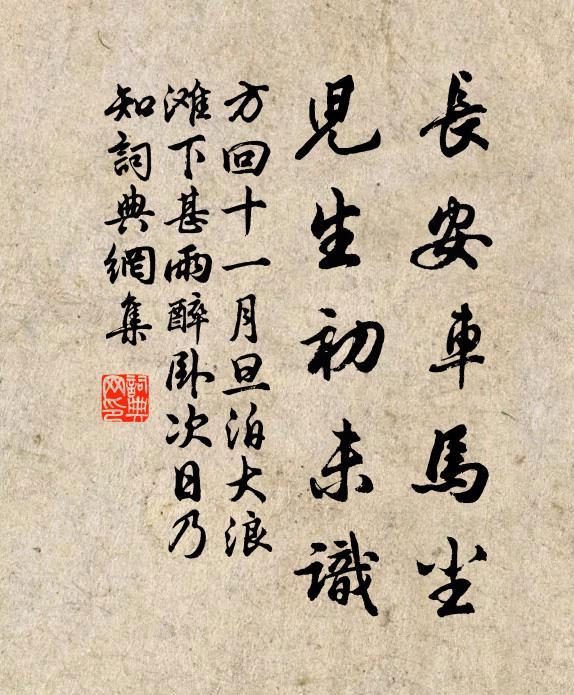 長安車馬尘
児生初未識
方回十一月旦泊大浪
滩下甚雨醉卧次日乃
知詞典網集
詞典网印